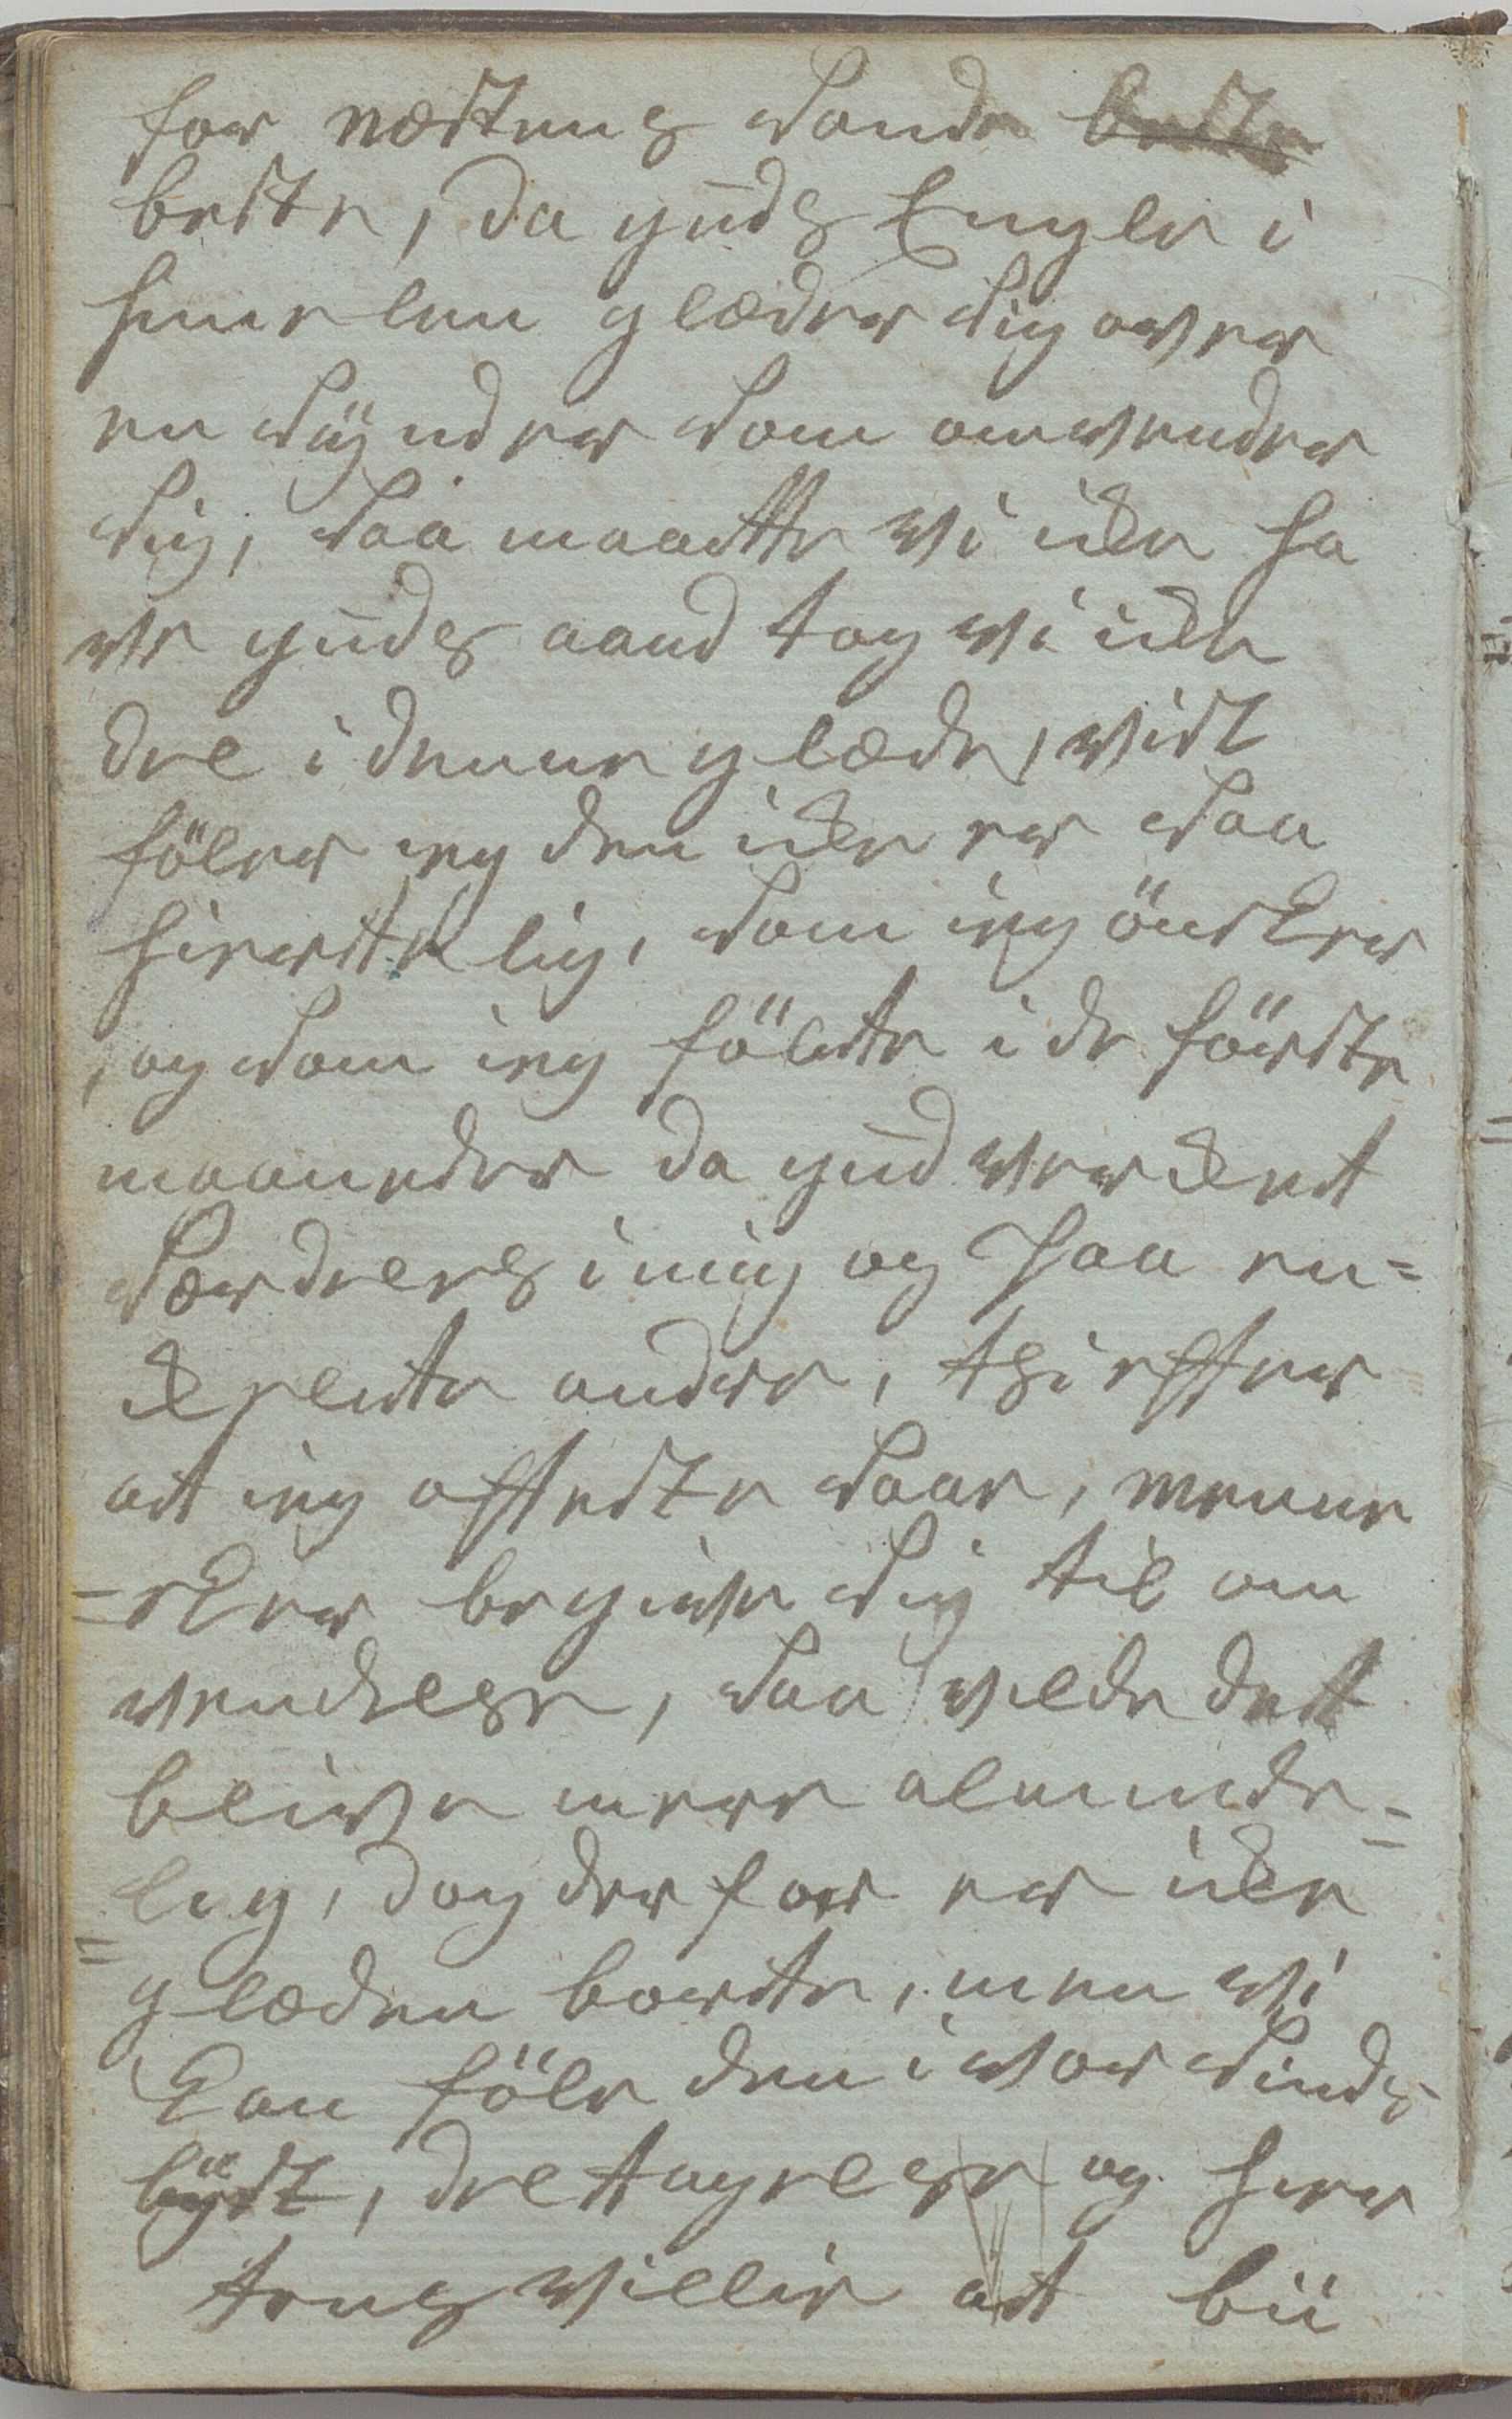 for næstens sande beste
beste, da guds Engle i
himelen glæder sig over
en synder som omvender
sig, saa maatte vi icke ha
ve guds aand tog vi icke
del i denne glæde, vist
föler ieg den icke er saa
hiertelig, som ieg önsker
, og som ieg fölte i de förste
maaneder da gud verket
særdeles i mig og saa en-
deelte andre, thi efter
at ieg oftest saae, menne
-sker begive sig til om
vendelse, saa vilde dett
blive mere alminde-
lig, dog derfor er icke
=glæden borte, men vi
kan föle den i vor sinds
lyst, deltagelse og her
tens villie at bü